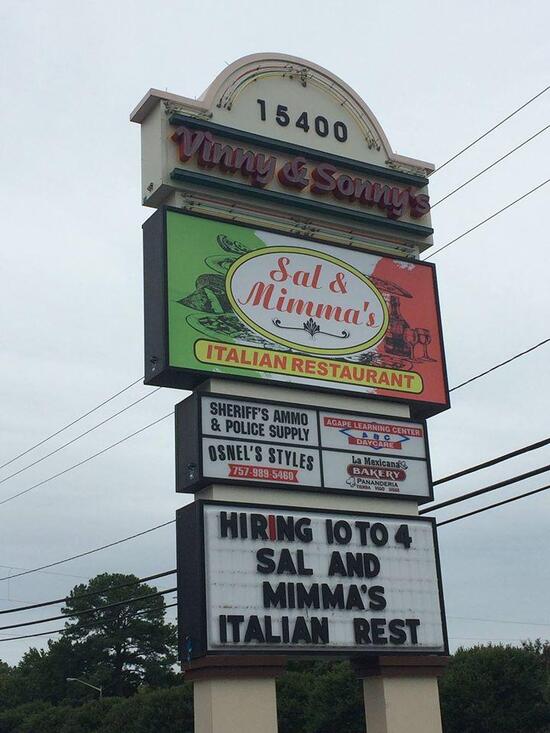 15400
Vinny & Sonny's
Sal &
Mimma's
ITALIAN RESTAURANT
SHERIFF'S AMMO
& POLICE SUPPLY
AGAPE LEARNING CENTER
A B C
DAYCARE
OSNEL'S STYLES
757-989-5460
La Mexicana
BAKERY
PANADERIA
HIRING 10 TO 4
SAL AND
MIMMA'S
ITALIAN REST